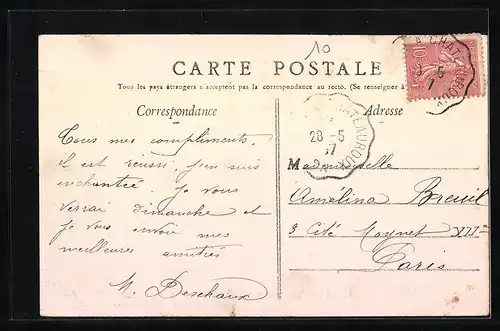 10
CARTE POSTALE
Tous les pays étrangers n'acceptent pas la correspondance au recto. (Se renseigner à
Correspondance
Adresse
A CHATEAUROUX
5
7
10
CHATEAUROUX
28-5
07
Tous mes compliments.
il est réussi, j'en suis
enchantée. Je vous
verrai dimanche et
je vous envoie mes
meilleures amitiés
M. Deschaux
Mademoiselle
Amélina Breuil
3 Cité Moynet XIIe
Paris